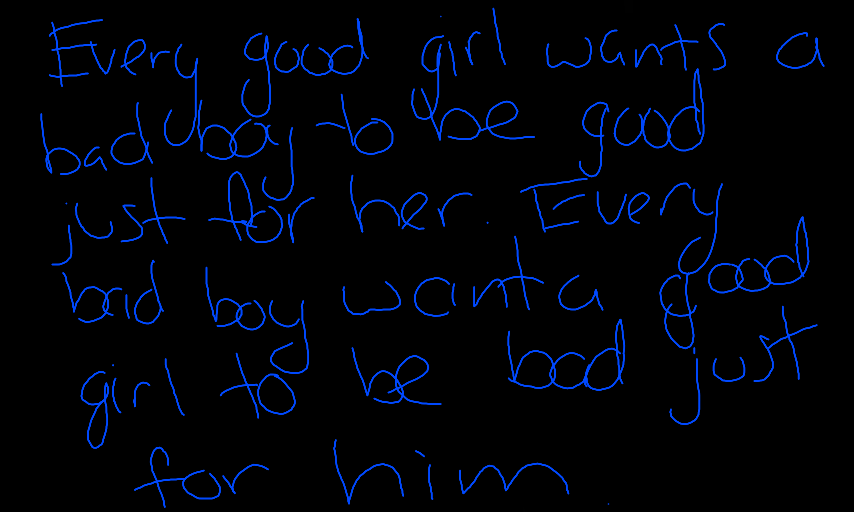 Every good girl wants a
bad boy to be good
just for her. Every
bad boy want a good
girl to be bad just
for him.